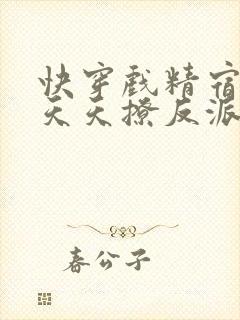 快穿戏精宿
天天撩反派
春公子